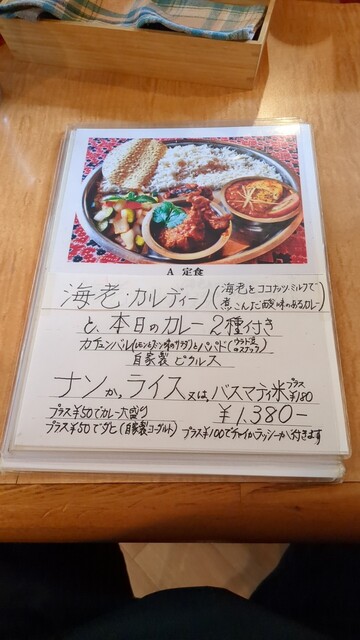 A 定食
海老・カルディーノ(海老をココナッツミルクで
煮こんだ酸味のあるカレー)
と、本日のカレー2種付き
カチュンバル(レモンとスパイス味のサラダ)とパパド(ウラド豆のスナック)
自家製ピクルス
ナンか、ライス 又は、バスマティ米 プラス¥180
プラス¥50でカレー大盛り
¥1,380-
プラス¥50でダヒ(自家製ヨーグルト) プラス¥100でチャイかラッシーが付きます